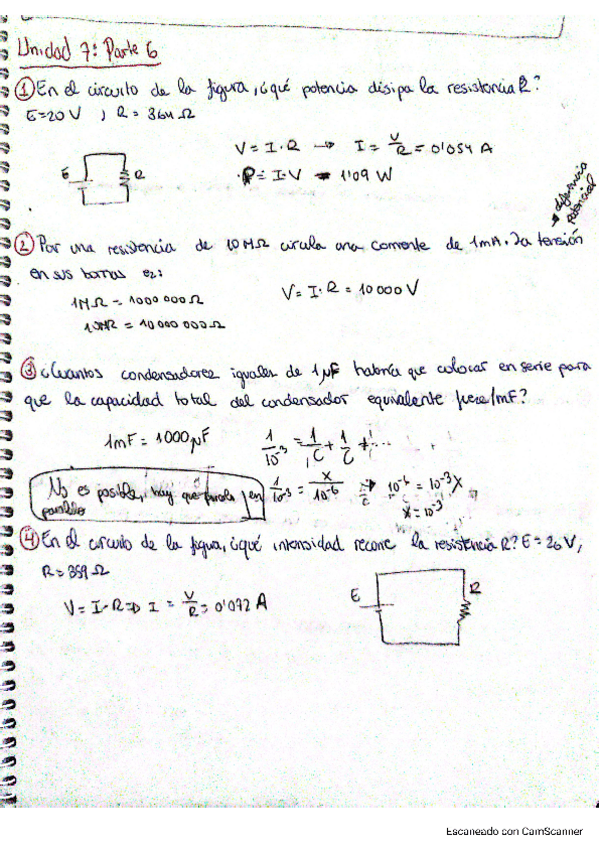 Unidad 7: Parte 6
① En el circuito de la figura, ¿qué potencia disipa la resistencia R?
E=20 V , R = 364 Ω
V = I·R → I = V/R = 0'054 A
P = I·V = 1'09 W
E
R
→ diferencia potencial
② Por una resistencia de 10 MΩ circula una corriente de 1mA. La tensión
en sus bornas es:
1MΩ = 1000 000 Ω
V = I·R = 10 000 V
10MΩ = 10 000 000 Ω
③ ¿Cuantos condensadores iguales de 1 μF habría que colocar en serie para
que la capacidad total del condensador equivalente fuese 1mF?
1mF = 1000 μF
1/10⁻³ = 1/C + 1/C + ...
1/10⁻³ = x/10⁻⁶ → 10⁻⁶ = 10⁻³x
x = 10⁻³
No es posible, hay que ponerlo en
paralelo
④ En el circuito de la figura, ¿qué intensidad recorre la resistencia R? E = 26 V,
R = 359 Ω
V = I·R ⇒ I = V/R = 0'072 A
E
R
Escaneado con CamScanner